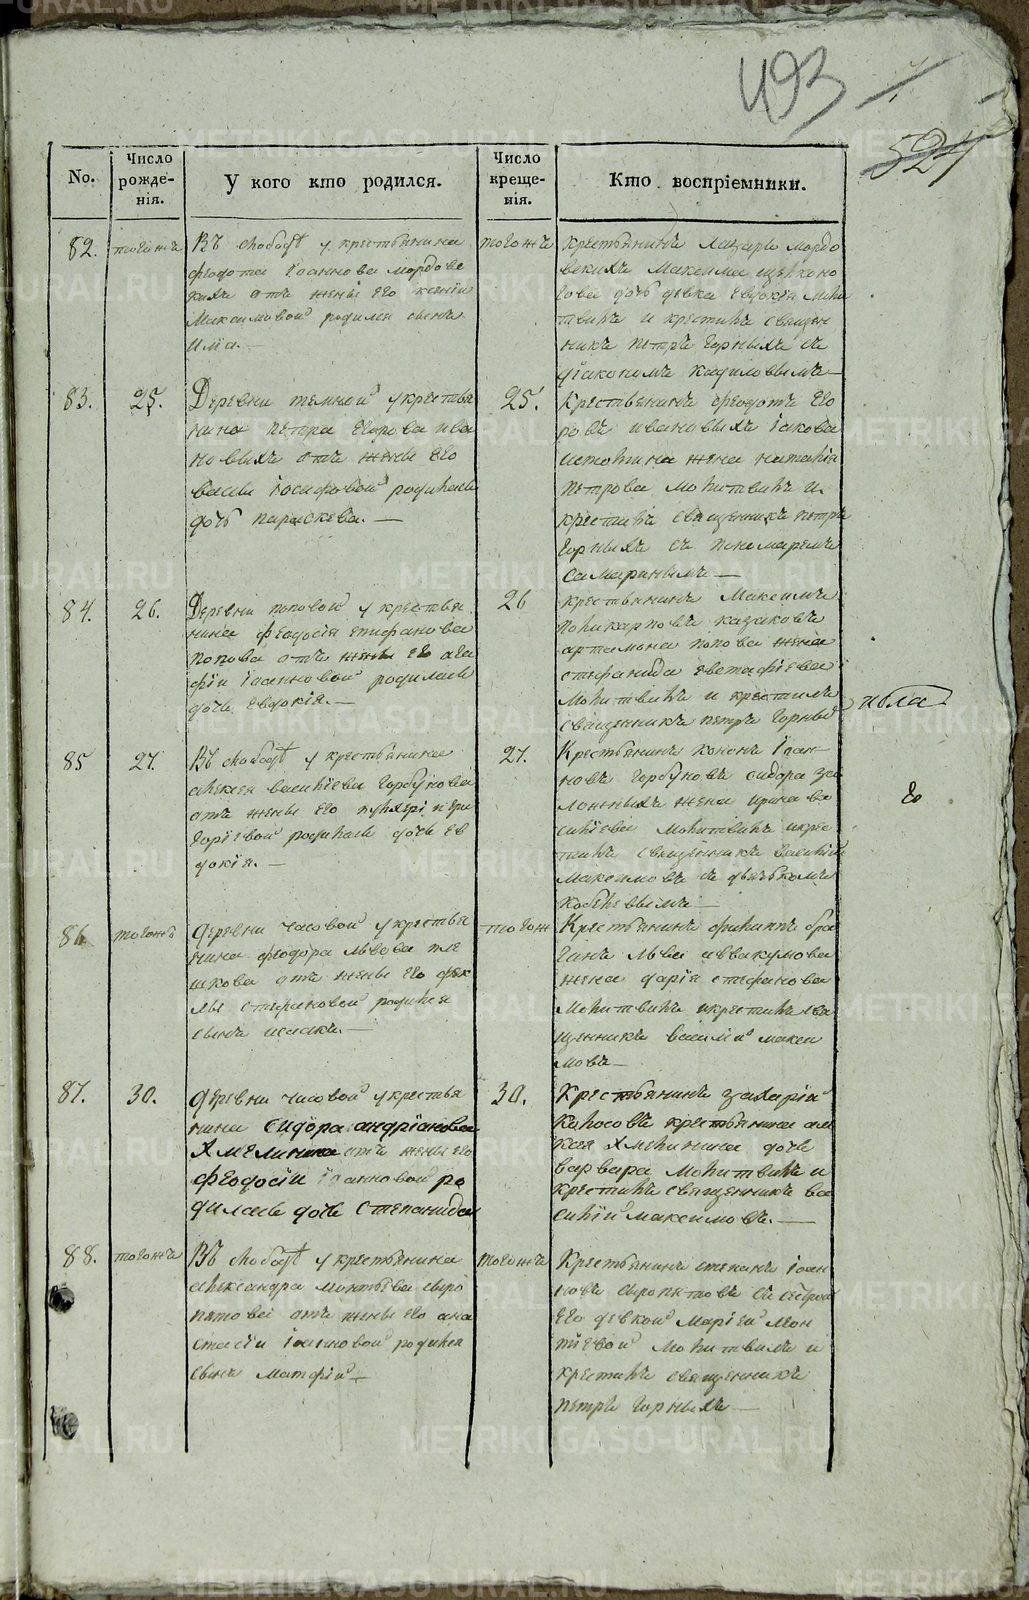 493
524
No.
Число рожде-нія.
У кого кто родился.
Число креще-нія.
Кто воспріемники.
82. тогожъ
Въ слободѣ у крестьянина
феодота Iоаннова мордов
скихъ отъ жены его ксенiи
Максимовой родился сынъ
илiа.—
тогожъ
крестьянинъ лазарь мордо
вскихъ Максима
дочь девка евдокiя моли
твилъ и крестилъ священ
никъ петръ горныхъ съ
дiакономъ
83. 25.
Деревни темной у крестья
нина петра егорова ива
новыхъ отъ жены его
васы iосифовой родилась
дочь параскева.—
25.
крестьянинъ феодотъ его
ровъ ивановыхъ iакова
истомина жена наталiя
петрова молитвилъ и
крестилъ священникъ петръ
горныхъ съ пономаремъ
самаринымъ—
84. 26.
Деревни поповой у крестья
нина феодосiя епифанова
попова отъ жены его ага
фiи iоанновой родилась
дочь евдокiя.—
26
крестьянинъ Максимъ
поликарповъ казаковъ
артамона попова жена
стефанида евстафiева
молитвилъ и крестилъ
священникъ петръ горныхъ
85 27.
Въ слободѣ у крестьянина
алексея василiева горбунова
отъ жены его пулхерiи гри
горiевой родилась дочь ев
докiя.—
27.
Крестьянинъ кононъ iоан-
новъ горбуновъ сидора
жена ирина ва
силiева молитвилъ икрес
тилъ священникъ василiй
Максимовъ съ дьячкомъ
86 тогожъ
деревни часовой у крестья
нина феодора львова
отъ жены его фек
лы стефановой родился
сынъ исаакъ.—
тогож
Крестьянинъ филиппъ
льва аввакумова
жена дарiя стефанова
молитвилъ икрестилъ свя
щенникъ василiй макси
мовъ—
87. 30.
деревни часовой у крестья
нина сидора андрiанова
Хмелинина отъ жены его
феодосiи iоанновой ро
дилась дочь степанида
30.
Крестьянинъ захарiа
колосовъ крестьянина
Хмелинина дочь
варвара молитвилъ и
крестилъ священникъ ва
силiй максимовъ.—
88. тогожъ
Въ слободѣ у крестьянина
александра
отъ жены его ана
стасiи iоанновой родился
сынъ матфiй—
тогожъ
Крестьянинъ степанъ iоан
новъ сыропятовъ съ
его девкой марiей
молитвилъ и
крестилъ священникъ
петръ горныхъ—